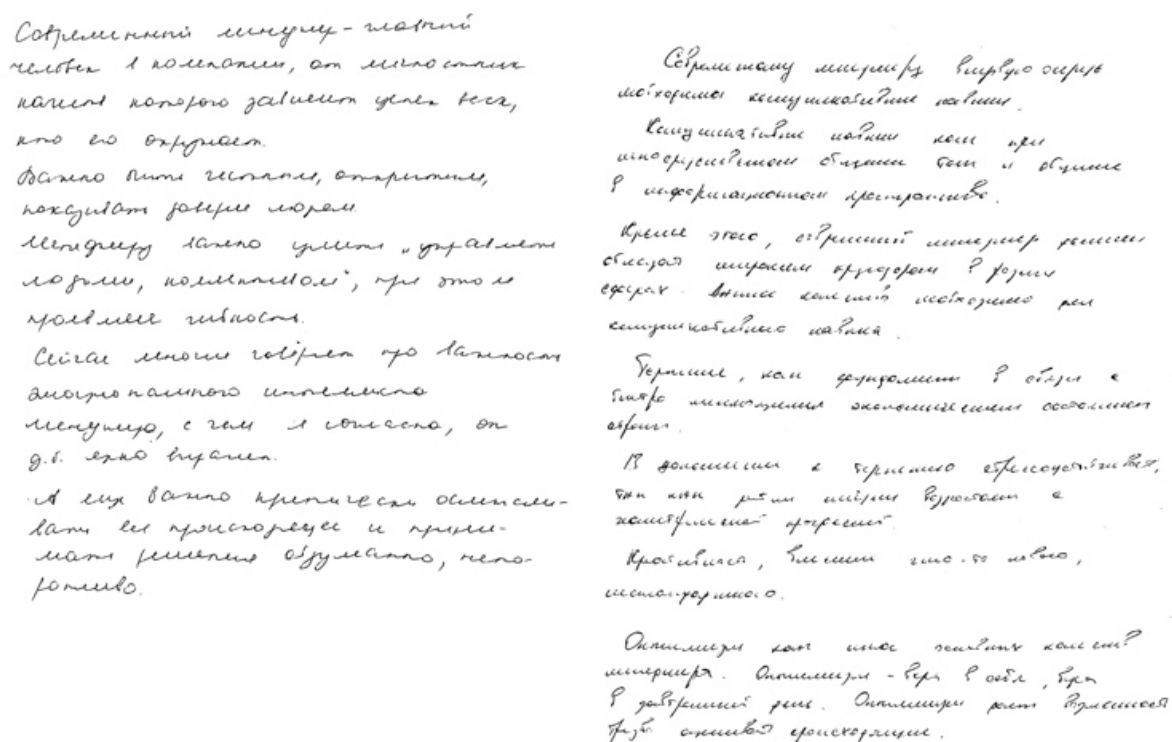 Современный менеджер - главный
человек в компании, от личностных
качеств которого зависит успех всех,
кто его окружает.
Важно быть честным, открытым,
показывать доверие людям.
Менеджеру важно уметь „управлять
людьми, коллективом", при этом
проявляя гибкость.
Сейчас многие говорят про важность
эмоционального интеллекта
менеджера, с чем я согласна, он
д.б. ярко выражен.
А ещё важно критически осмысли-
вать все происходящее и прини-
мать решения обдуманно, нето-
ропливо.
Современному менеджеру в первую очередь
необходимы коммуникативные навыки.
Коммуникативные навыки как при
непосредственном общении так и общение
в информационном пространстве.
Кроме этого, современный менеджер должен
обладать широким кругозором в разных
сферах. Данное качество необходимо для
коммуникативного навыка.
Терпение, как фундамент в связи с
быстро меняющимся экономическим состоянием
страны.
В дополнении к терпению стрессоустойчивость,
так как ритм жизни возрастает с
прогрессией.
Креативность, внесение чего-то нового,
нестандартного.
Оптимизм как одно из качеств
менеджера. Оптимизм - вера в себя, вера
в завтрашний день. Оптимизм дает возможность
трезво оценивать происходящее.